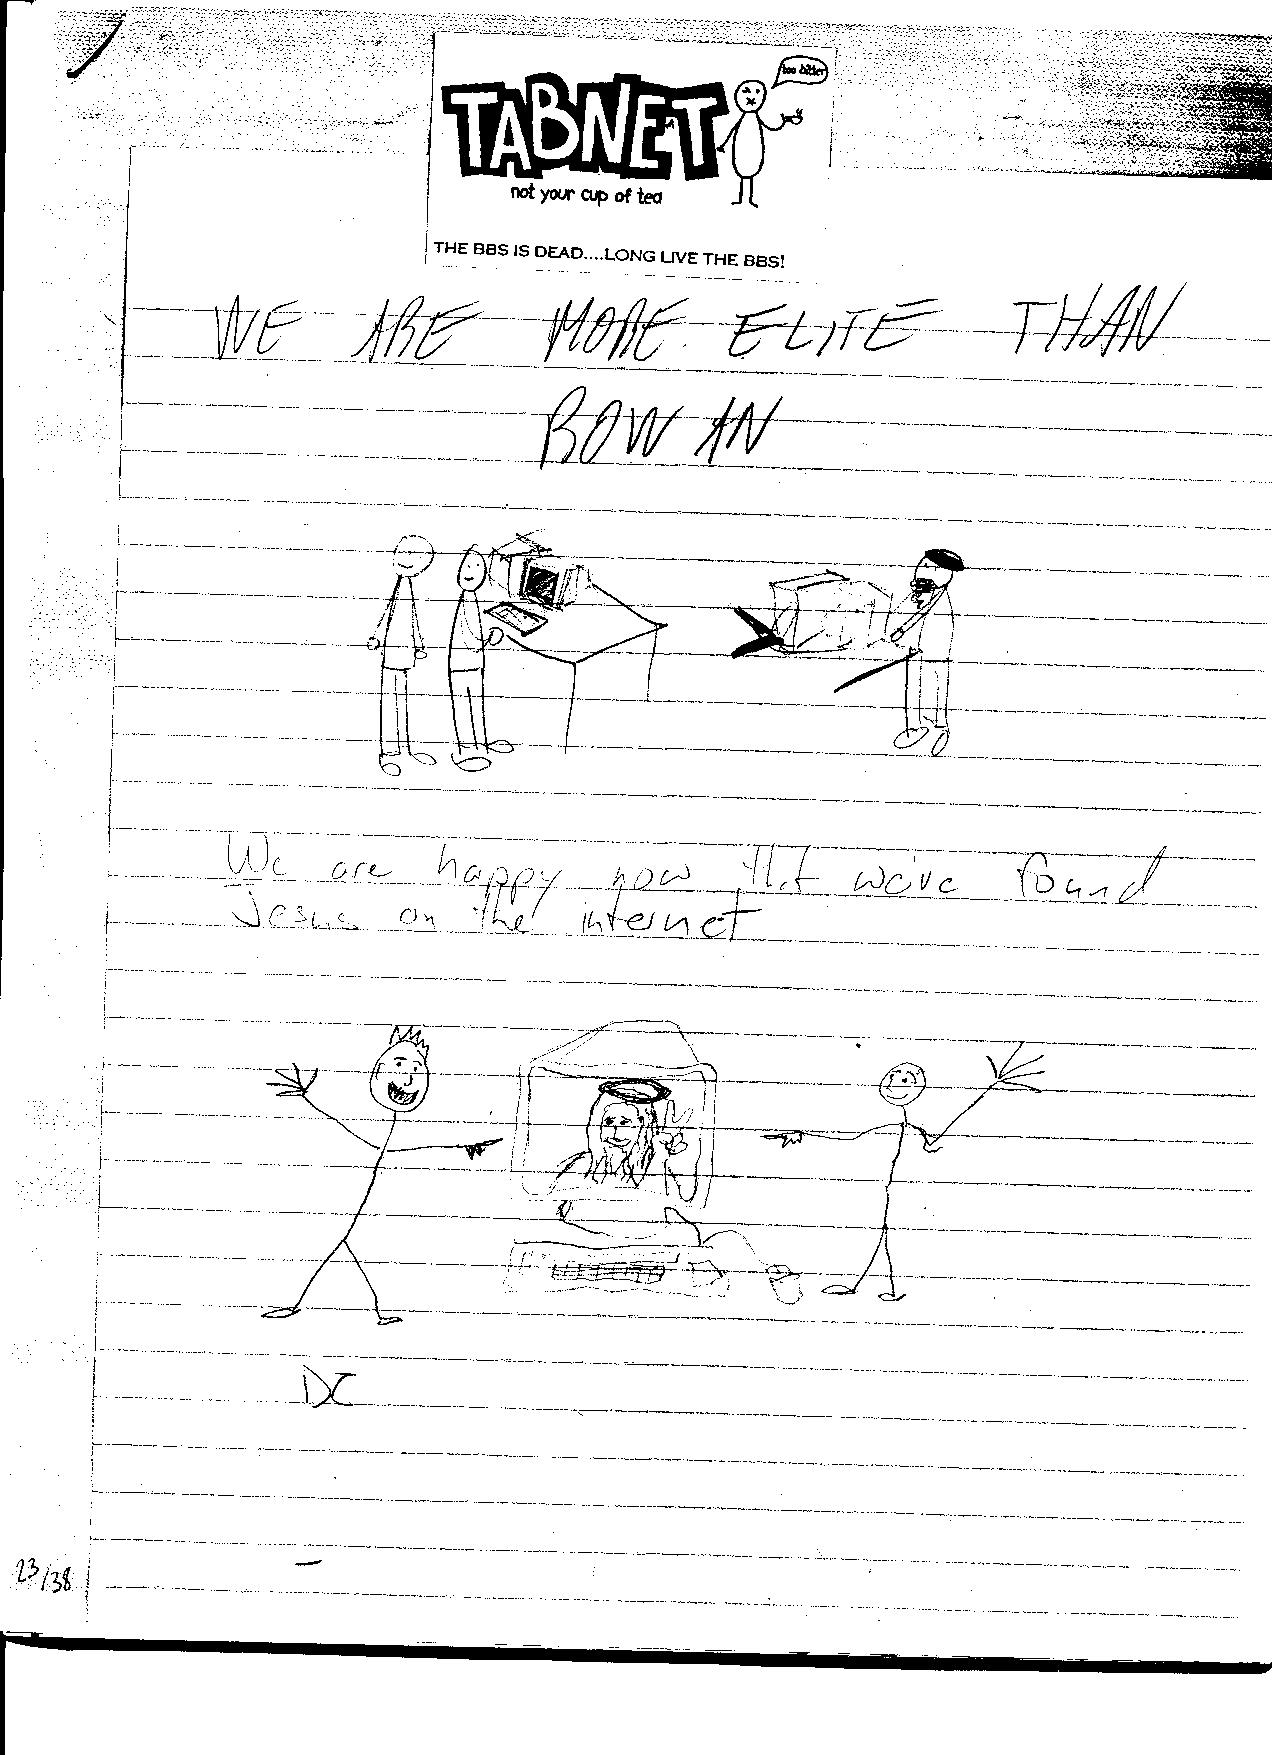 too bitter
TABNET
not your cup of tea
THE BBS IS DEAD....LONG LIVE THE BBS!
WE ARE MORE ELITE THAN
ROWAN
We are happy now that we've found
Jesus on the internet
DC
23/38